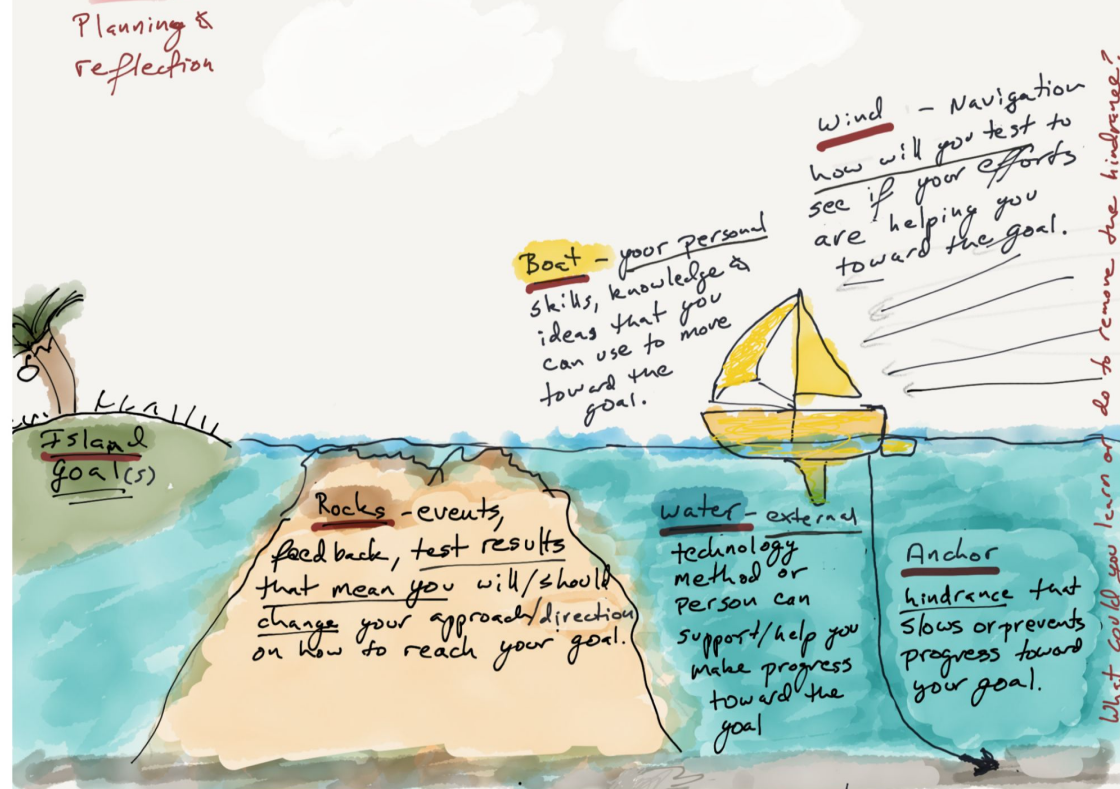 Planning &
reflection
Wind - Navigation
how will you test to
see if your efforts
are helping you
toward the goal.
Boat - your personal
skills, knowledge &
ideas that you
can use to move
toward the
goal.
Island
goal(s)
Rocks - events,
feedback, test results
that mean you will/should
change your approach/direction
on how to reach your goal.
Water - external
technology
method or
person can
support/help you
make progress
toward the
goal
Anchor
hindrance that
slows or prevents
progress toward
your goal.
What could you learn or do to remove the hindrance?